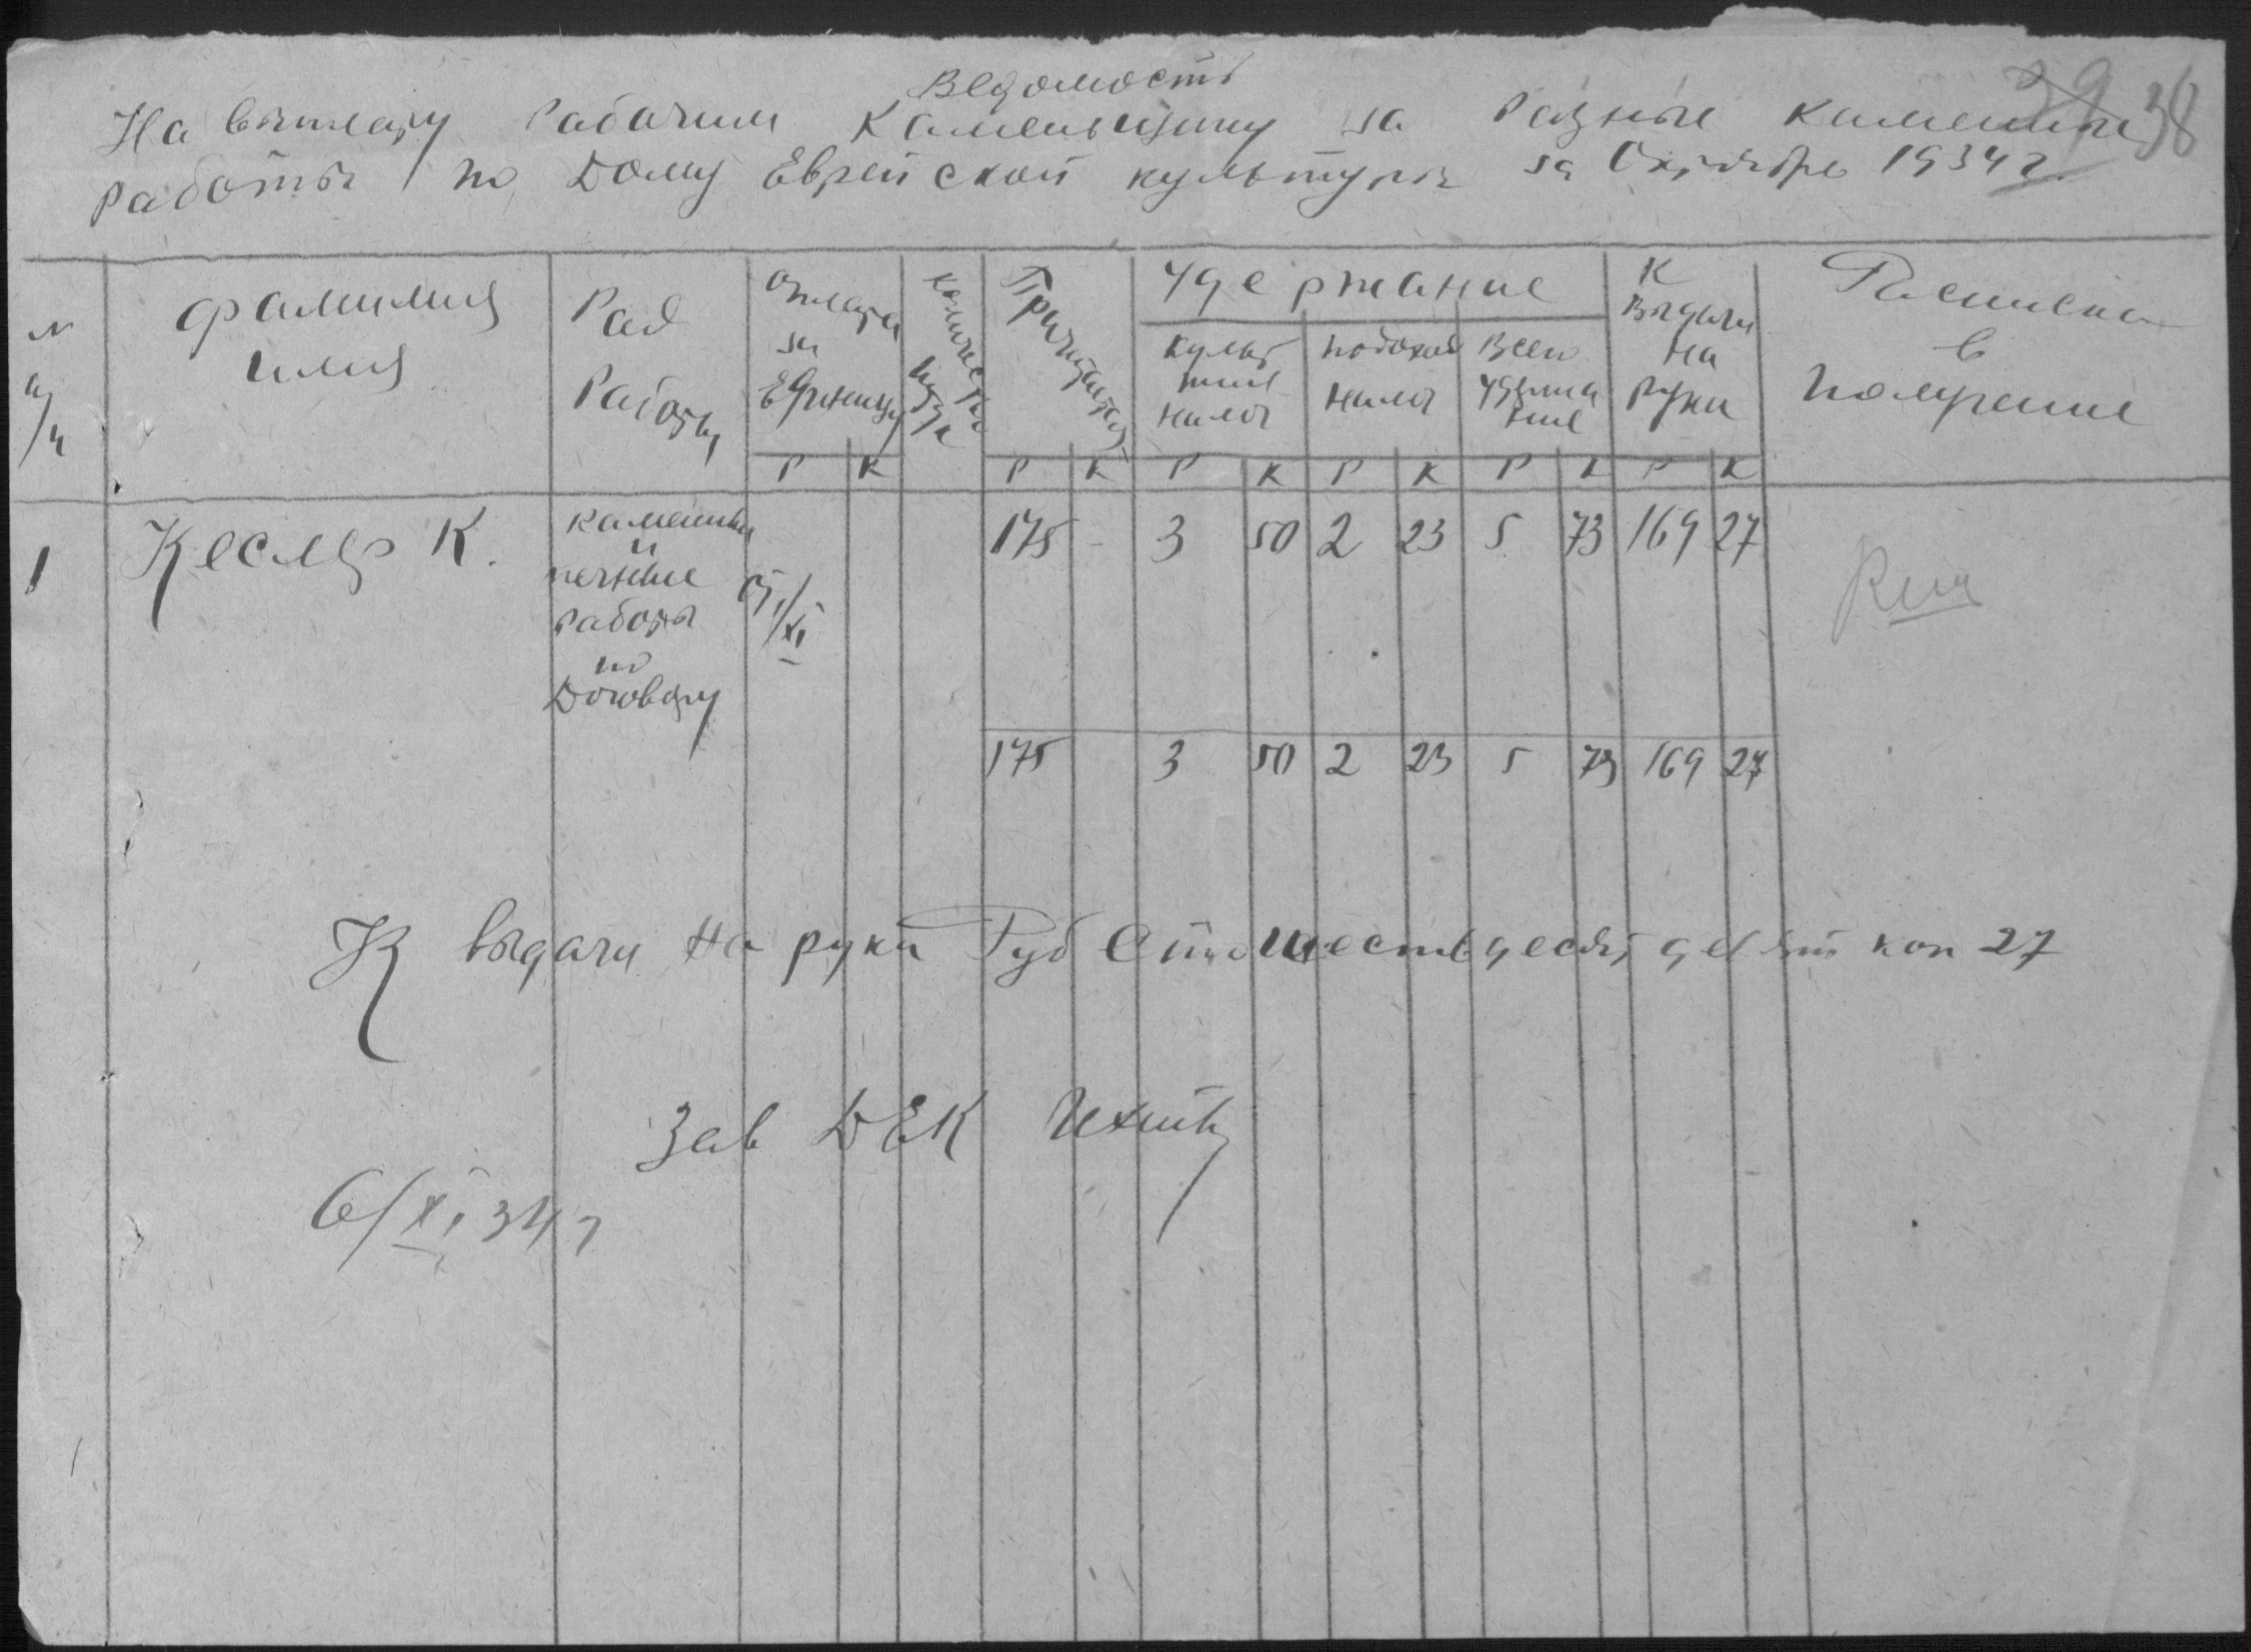 Ведомость
39 38
На выплату рабочим каменьщику за разные каменные
работы по Дому Еврейской культуры за Октябрь 1934 г.
N п/п
фамилия имия
Рад Работы
оплата за Единицу
количество
Причитается
удержание
культ налог
подоход налог
Всего удержание
К выдачи на руки
Росписка в получение
Р К Р К Р К Р К Р К Р К
1 Кеслер К. каменные и печные работы по Договору от /XI 175 - 3 50 2 23 5 73 169 27
175 3 50 2 23 5 73 169 27
К выдачи на руки Руб Сто шестьдесят девять коп 27
Зав ДЕК
6/XI 34 г